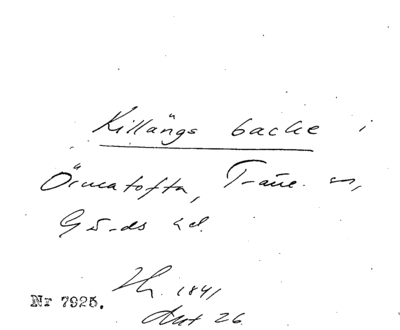 Killängs backe i
Örmatofta, Trane. sn,
Gärds hd.
Nr 7925. 1841
26.